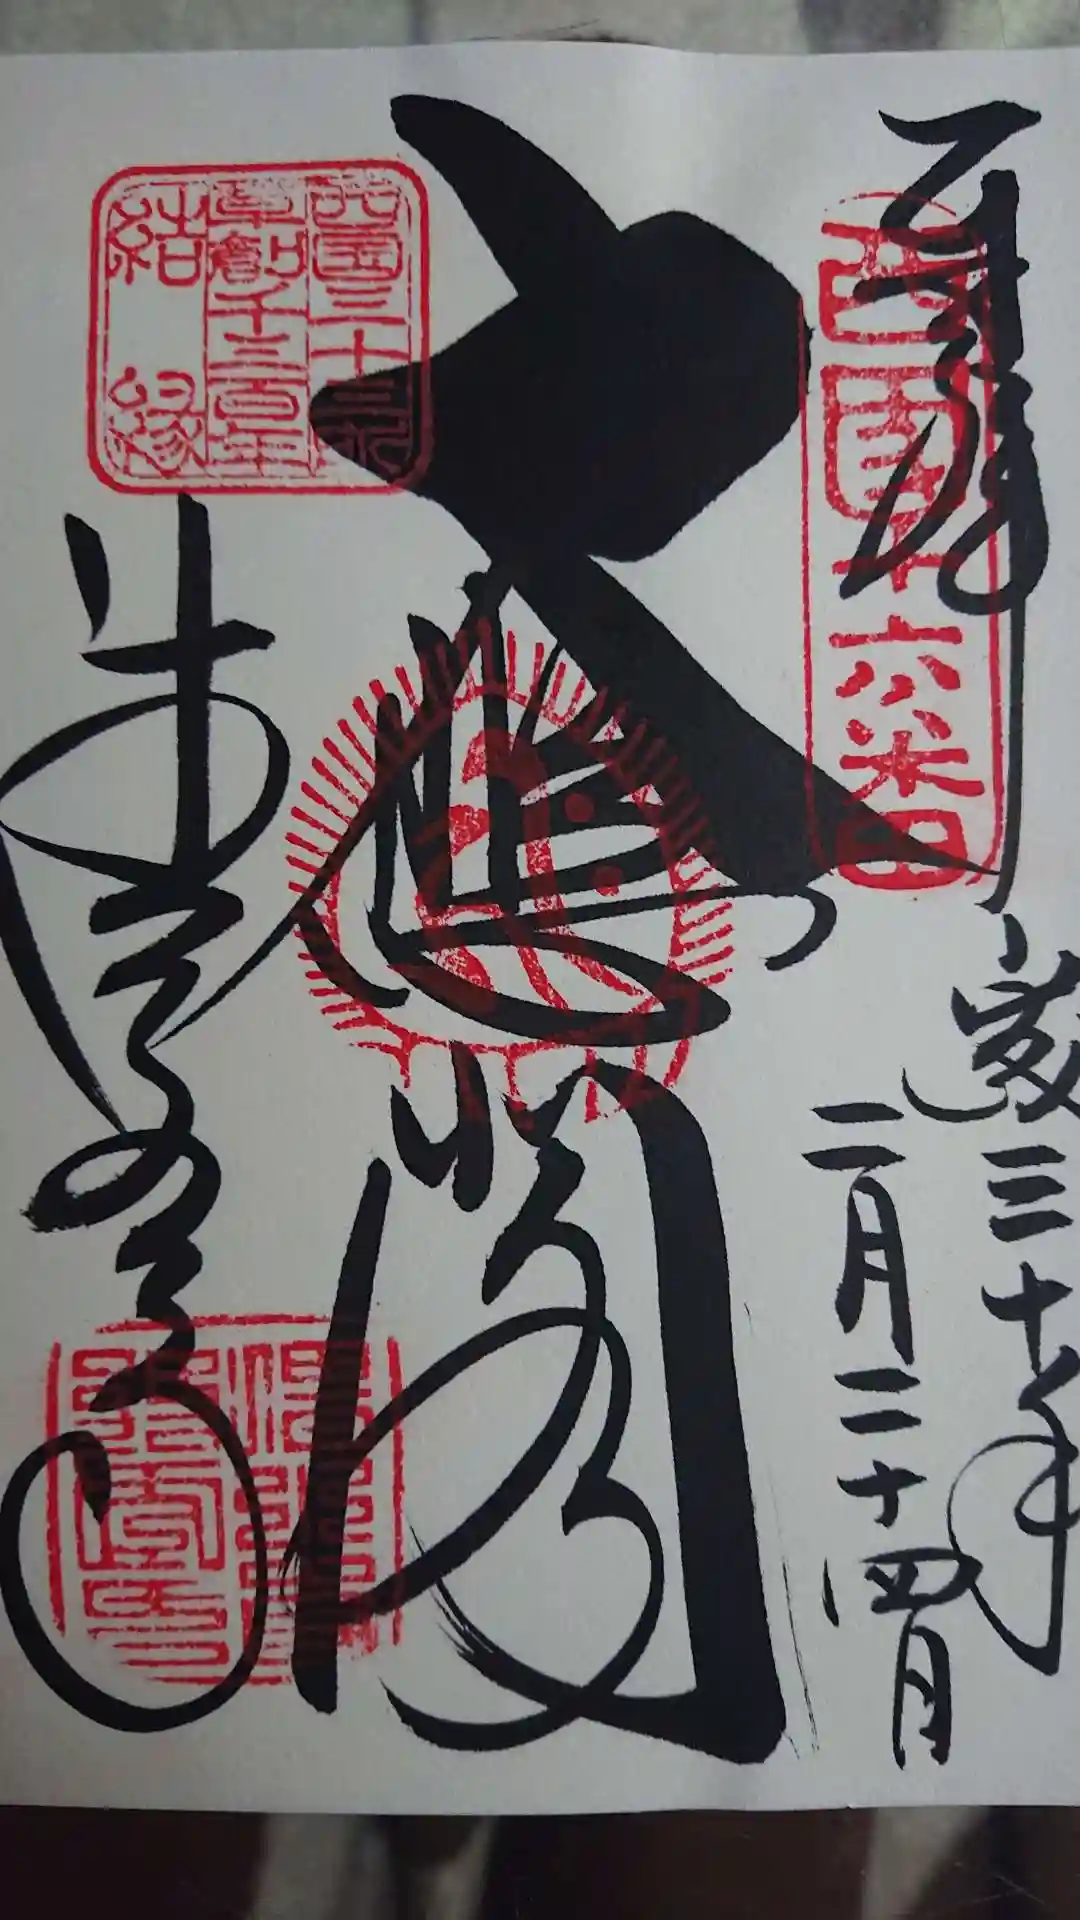 奉拝
西国十六番
平成三十年
二月二十四日
大悲閣
西国三十三所
草創千三百年
結縁
清水寺